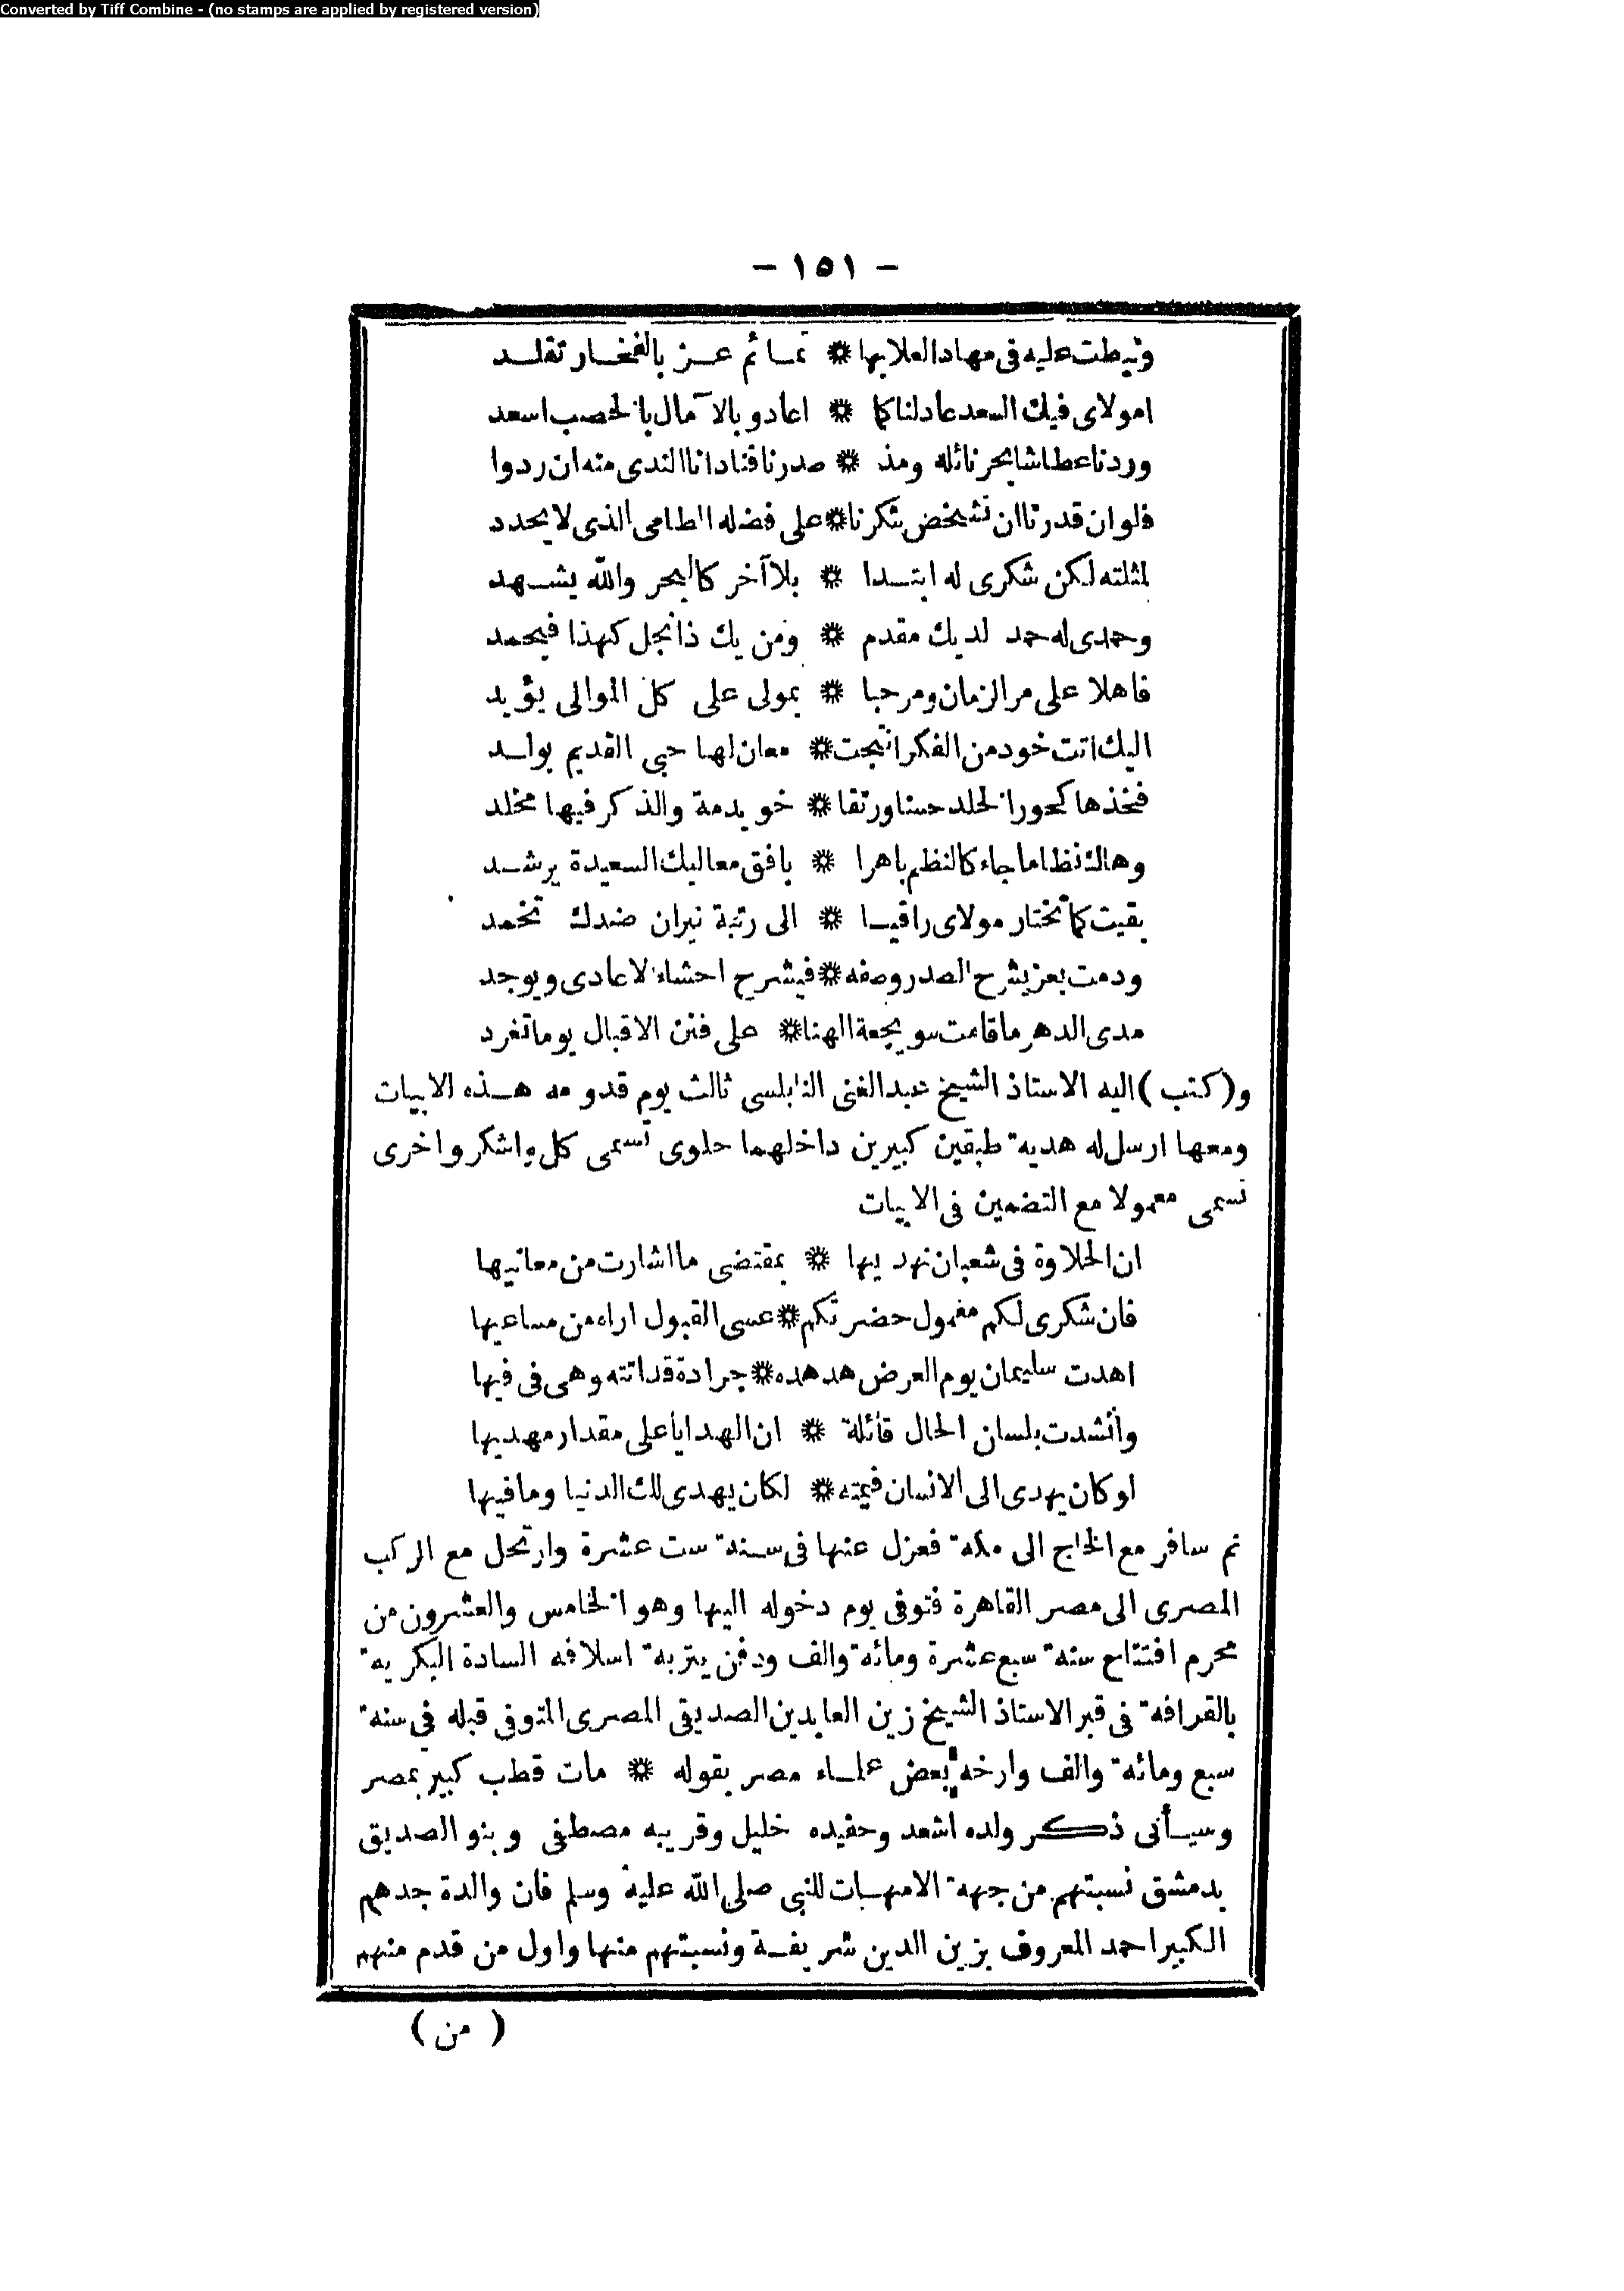 Converted by Tiff Combine - (no stamps are applied by registered version)
– ١٥١ –
ونيطت عليه فى مهاد العلا بها ❋ تمائم عز بالفخار تقلد
امولاى فيك السعد عاد لنا كما ❋ اعاد وبالآمال بالخصب اسعد
وردنا عطاشا بحر نائله ومذ ❋ صدرنا فنادانا الندى منه ان ردوا
فلو ان قدرتا ان نشخض شكرنا ❋ على فضله الطامى الذى لا يحدد
لمثلته لكن شكرى له ابتدا ❋ بلا آخر كالبحر والله يشهد
وحمدى له حمد لديك مقدم ❋ ومن يك ذا نجل كهذا فيحمد
فاهلا على مر الزمان ومرحبا ❋ بمولى على كل الموالى يؤيد
اليك اتت خود من الفكر انتجت ❋ معان لها حبى القديم يولد
فخذها كحور الخلد حسنا ورتقا ❋ خويدمة والذكر فيها مخلد
وهاك نظاما جاء كالنظم باهرا ❋ بافق معاليك السعيدة يرشد
بقيت كما تختار مولاى راقيا ❋ الى رتبة نيران ضدك تخمد
ودمت بعز يشرح الصدر وصفه ❋ فيشرح احشاء الاعادى ويوجد
مدى الدهر ما قامت سويجعة الهنا ❋ على فنن الاقبال يوما تغرد
و(كتب) اليه الاستاذ الشيخ عبد الغنى النابلسى ثالث يوم قدومه هذه الابيات
ومعها ارسل له هدية طبقين كبيرين داخلهما حلوى تسمى كل واشكر واخرى
تسمى معمولا مع التضمين فى الابيات
ان الحلاوة فى شعبان نهديها ❋ بمقتضى ما اشارت من معانيها
فان شكرى لكم معمول حضرتكم ❋ عسى القبول اراه من مساعيها
اهدت سليمان يوم العرض هدهده ❋ جرادة قد اتته وهى فى فيها
وأنشدت بلسان الحال قائلة ❋ ان الهدايا على مقدار مهديها
لوكان يهدى الى الانسان قيمته ❋ لكان يهدى لك الدنيا وما فيها
ثم سافر مع الحاج الى مكة فعزل عنها فى سنة ست عشرة وارتحل مع الركب
المصرى الى مصر القاهرة فتوفى يوم دخوله اليها وهو الخامس والعشرون من
محرم افتتاح سنة سبع عشرة ومائة والف ودفن بتربة اسلافه السادة البكرية
بالقرافة فى قبر الاستاذ الشيخ زين العابدين الصديقى المصرى المتوفى قبله فى سنة
سبع ومائة والف وارخه بعض علماء مصر بقوله ❋ مات قطب كبير بمصر
وسيأتى ذكر ولده اسعد وحفيده خليل وقريبه مصطفى وبنو الصديق
بدمشق نسبتهم من جهة الامهات للنبى صلى الله عليه وسلم فان والدة جدهم
الكبير احمد المعروف بزين الدين شريفة ونسبتهم منها واول من قدم منهم
( من )